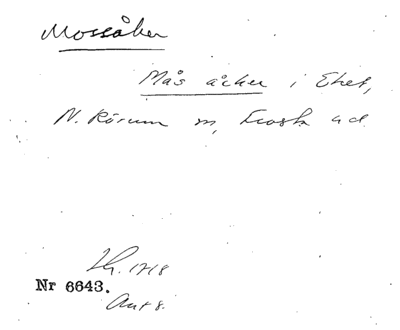 Mossåker
Mås åcker i Ehet,
N. Rörum sn, Frosta hd
LG. 1718
Nr 6643.
Ant 8.